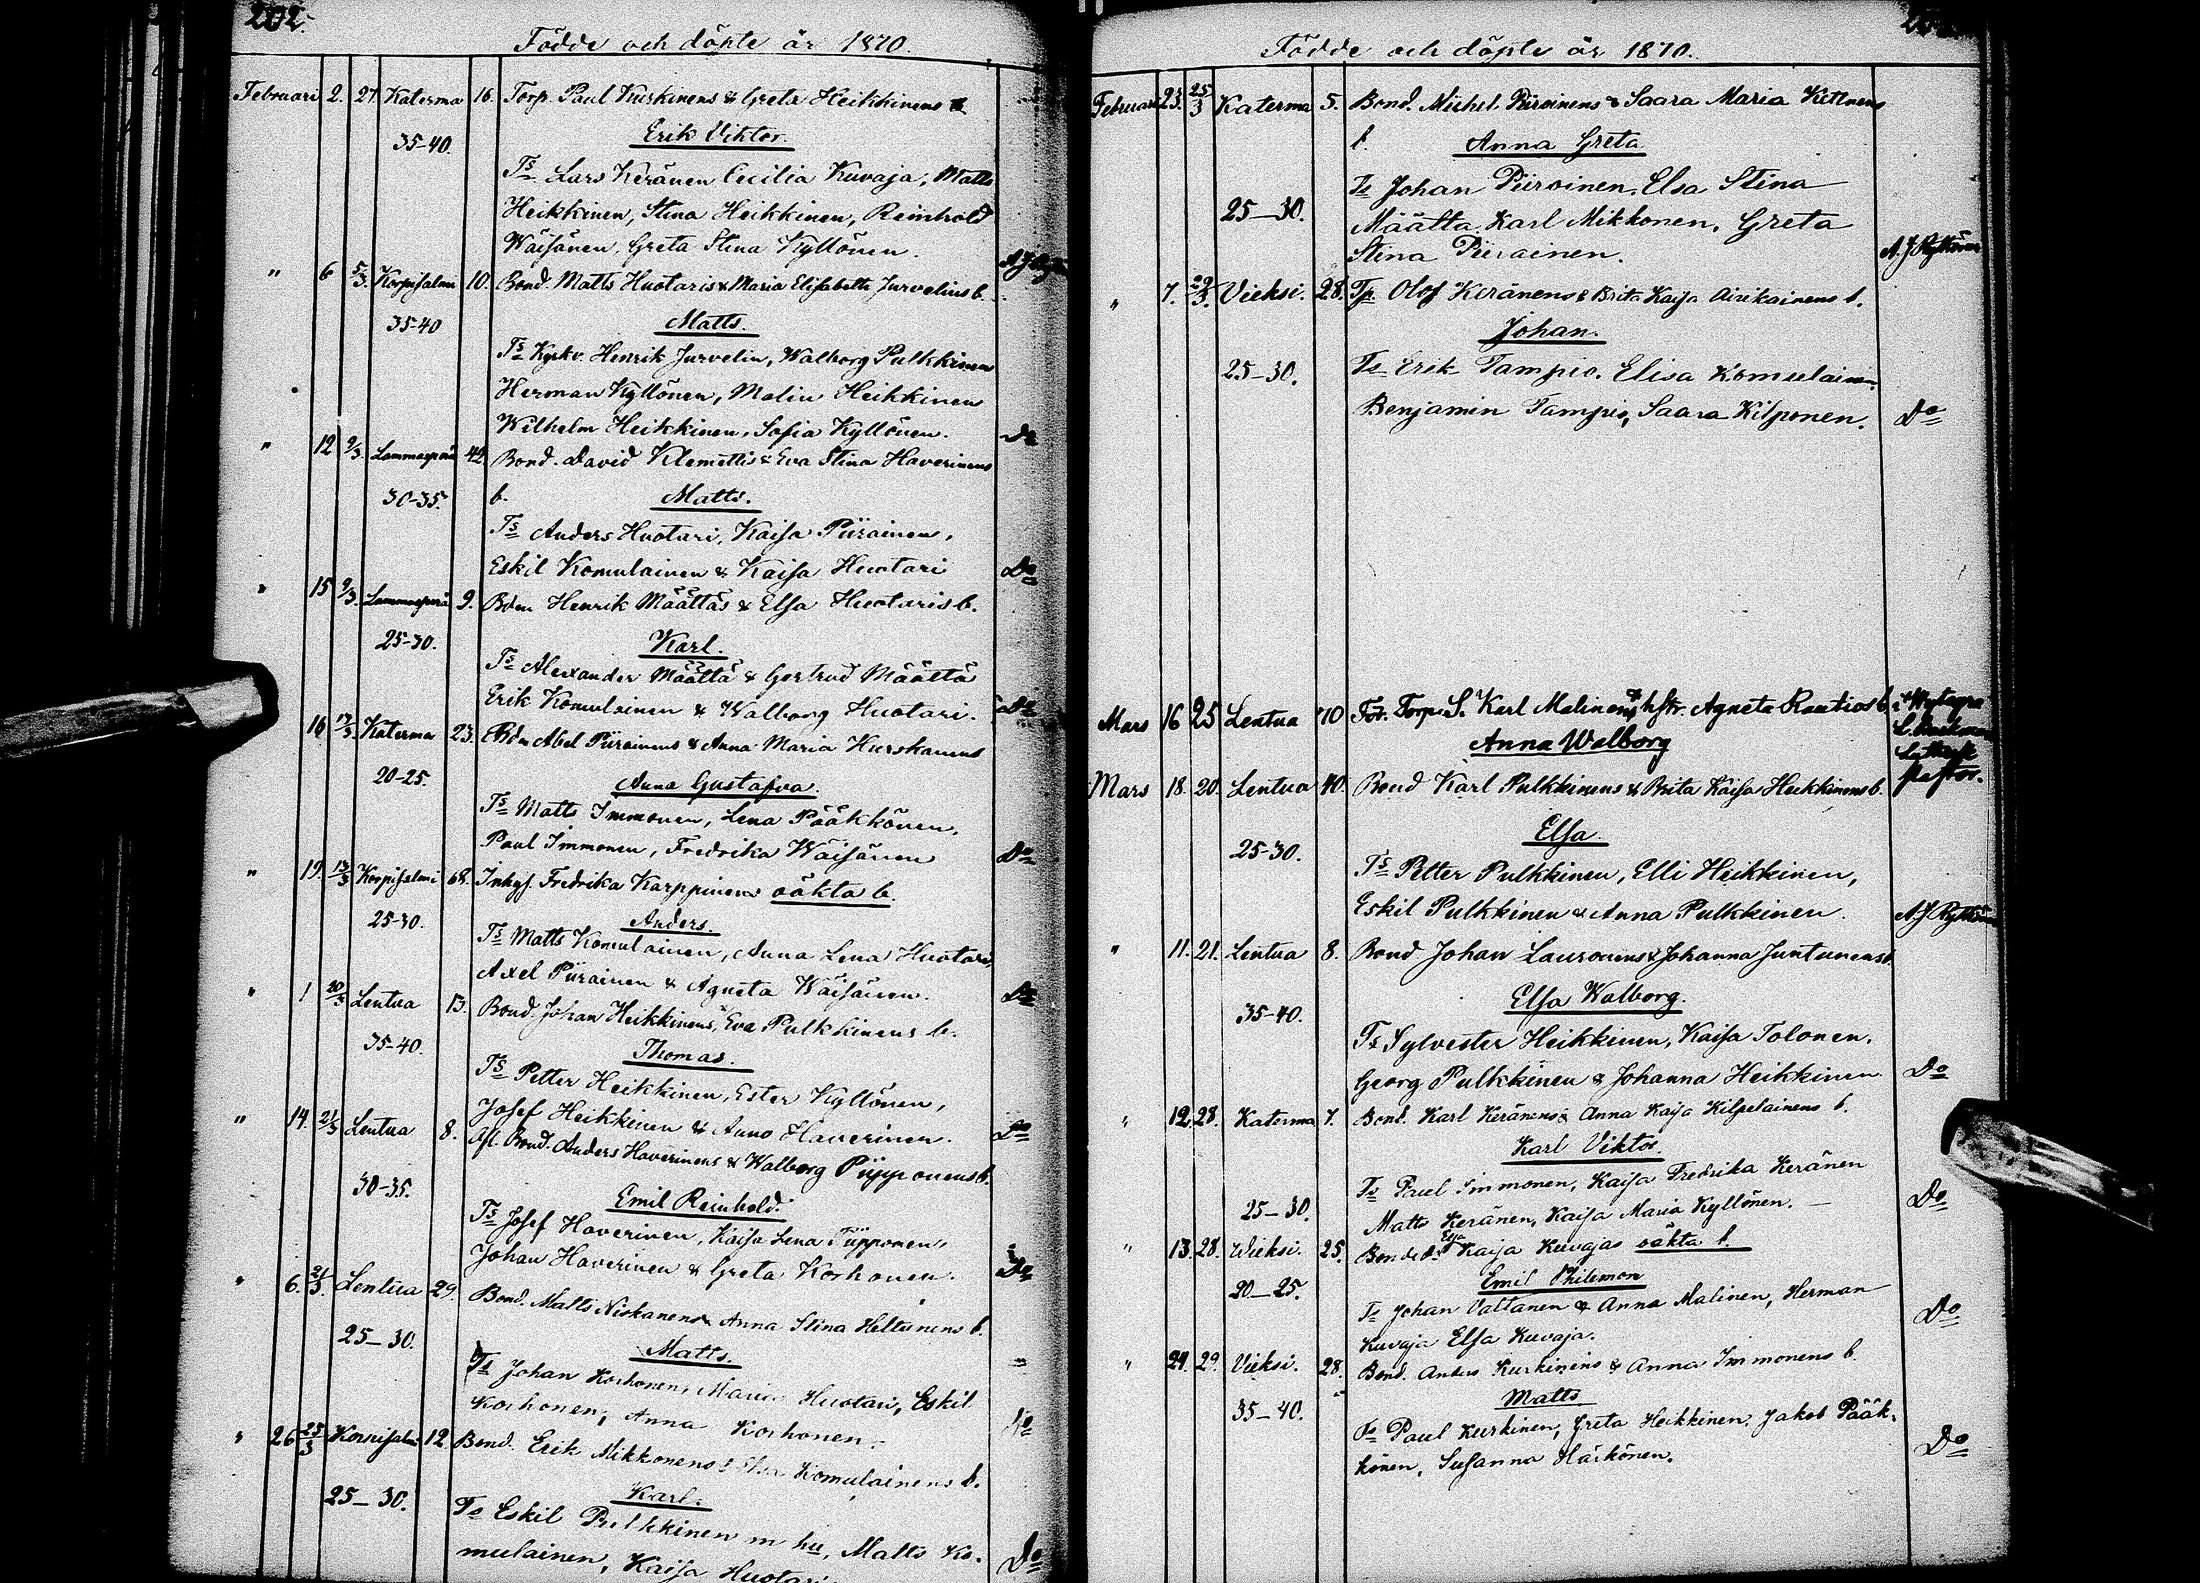 202.
Födde och döpte år 1870.
Februari 2. 27. Katerma 16. Torp. Paul Kurkinens & Greta Heikkinens b.
Erik Viktor.
35-40.
Ts Lars Keränen Cecilia Kuvaja, Matts
Heikkinen, Stina Heikkinen, Reinhold
Wäisänen, Greta Stina Kyllönen.
" 6 5/3. Korpisalmi 10. Bond. Matts Huotaris & Maria Elisabeth Jurvelius b.
35-40
Matts.
Ts Kyrkv. Henrik Jurvelin, Walborg Pulkkinen
Herman Kyllönen, Malin Heikkinen
Wilhelm Heikkinen, Sofia Kyllönen. Do
" 12 9/3 Lammasperä 42. Bond. David Klemettis & Eva Stina Haverinens
30-35. b. Matts.
Ts Anders Huotari, Kaisa Piirainen,
Eskil Komulainen & Kaisa Huotari Do
" 15 9/3. Lammasperä 9. Bdn Henrik Määttäs & Elsa Huotaris b.
25-30. Karl.
Ts Alexander Määttä & Gertrud Määttä
Erik Komulainen & Walborg Huotari. Do
16 13/3. Katerma 23. Bdn Abel Piirainens & Anna Maria Kurskanens
20-25. Anna Gustafva.
Ts Matts Immonen, Lena Pääkkönen,
Paul Immonen, Fredrika Wäisänen Do
" 19. 13/3 Korpisalmi 68. Inhys. Fredrika Karppinens oäkta b.
25-30. Anders.
Ts Matts Komulainen, Anna Lena Huotari,
Axel Piirainen & Agneta Wäisänen. Do
" 1 20/3 Lentua 13. Bond. Johan Heikkinens, Eva Pulkkinens b.
35-40. Thomas.
Ts Petter Heikkinen, Ester Kyllönen,
Josef Heikkinen & Anno Haverinen. Do
" 14. 21/3 Lentua 8. Afl. Bond. Anders Haverinens & Walborg Piipponens b.
30-35. Emil Reinhold.
Ts Josef Haverinen, Kaisa Lena Piipponen,
Johan Haverinen & Greta Korhonen. Do
" 6. 21/3. Lentua 29. Bond. Matts Niskanens & Anna Stina Heltunens b.
25-30. Matts.
Ts Johan Korhonen, Maria Huotari, Eskil
Korhonen, Anna Korhonen. Do
" 26 25/3 Korpisalmi 12. Bond. Erik Mikkonens & Elsa Komulainens b.
25-30. Karl.
Ts Eskil Pulkkinen m hu, Matts Ko-
mulainen, Kaisa Huotari Do
Födde och döpte år 1870.
Februari 23. 25/3 Katerma 5. Bond. Michel Piirainens & Saara Maria
b. Anna Greta
Ts Johan Piirainen, Elsa Stina
25-30. Määtta, Karl Mikkonen, Greta
Stina Piirainen. A. J. Kyllönen
" 7. 29/3. Vieksi. 28. Tp. Olof Keränens & Brita Kaisa Airikainens b.
Johan.
25-30. Ts Erik Tampio, Elisa Komulainen
Benjamin Tampio, Saara Kilponen. Do
Mars 16 25 Lentua 10 Torp. S. Karl Malinens & hstr. Agneta Rautios b. i Wytegra
Anna Walborg
L. Backman
Luthersk
pastor.
Mars 18. 20. Lentua 40. Bond Karl Pulkkinens & Brita Kaisa Heikkinens b.
25-30. Elsa.
Ts Petter Pulkkinen, Elli Heikkinen,
Eskil Pulkkinen & Anna Pulkkinen. A. J. Kyllönen
" 11. 21. Lentua 8. Bond Johan Lauronens & Johanna Juntunens b.
35-40. Elsa Walborg.
Ts Sylvester Heikkinen, Kaisa Tolonen,
Georg Pulkkinen & Johanna Heikkinen. Do
" 12. 28. Katerma 7. Bond. Karl Keränens & Anna Kaisa Kilpelainens b.
Karl Viktor.
25-30. Ts Paul Immonen, Kaisa Fredrika Keränen
Matts Keränen, Kaisa Maria Kyllönen. Do
" 13. 28. Wieksi. 25. Bonded. Elsa Kaisa Kuvajas oäkta b.
20-25. Emil Philemon
Ts Johan Valtanen & Anna Malinen, Herman
Kuvaja Elsa Kuvaja. Do
" 24. 29. Vieksi. 28. Bond. Anders Kurkinens & Anna Immonens b.
35-40. Matts
Ts Paul Kurkinen, Greta Heikkinen, Jakob Pääk-
könen, Susanna Härkönen. Do